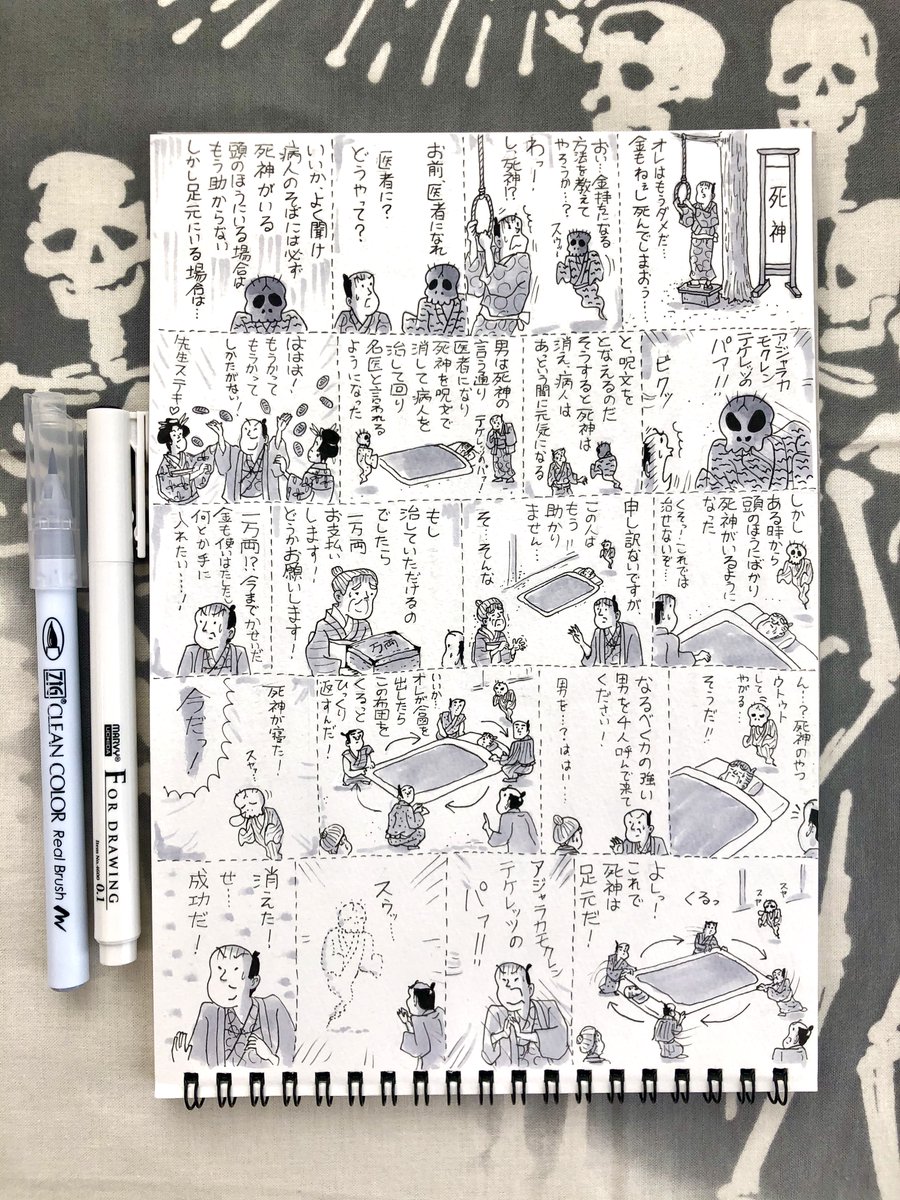 死神
オレはもうダメだ…
金もねぇし死んでしまおう…
おい…金持ちになる
方法を教えて
やろうか…?
スゥ…
わっ!
し、死神!?
お前、医者になれ
医者に?
どうやって?
いいか、よく聞け
病人のそばには必ず
死神がいる
頭のほうにいる場合は
もう助からない
しかし足元にいる場合は…
アジャラカ
モクレン
テケレッツの
パァ!!
ビクッ
と呪文を
となえるのだ
そうすると死神は
消え、病人は
あっという間に元気になる
男は死神の
言う通り
医者になり
死神を呪文で
消して病人を
治して回り
名医と言われる
ようになった
テケレッツのパァ!
ははは!
もうかって
もうかって
しかたがない!
先生ステキ♡
しかし
ある時から
頭のほうにばかり
死神がいるように
なった
くそっ!これでは
治せないぞ…
申し訳ないですが、
この人は
もう助かり
ません…
そ…そんな
もし
治していただけるの
でしたら
一万両
お支払い
します!
どうかお願いします!
一万両
一万両!?今までかせいだ
金も使いはたしたし
何とか手に
入れたい…!
ん…?死神のやつ
ウトウト
して
やがる…
そうだ!!
なるべく力の強い
男を4人呼んで来て
ください!
男を…?ははい
いいか…
オレが合図を
出したら
この布団を
くるっと
ひっくり
返すんだ!
死神が寝た!
スヤ…
今だっ!
スヤ
スヤ
くるっ
よしっ!
これで
死神は
足元だ!
アジャラカモクレン
テケレッツの
パァ!!
スウッ…
消えた!
せ…
成功だ!
ZIG CLEAN COLOR Real Brush
MARVY
UCHIDA
FOR DRAWING
Item No.4600 0.1